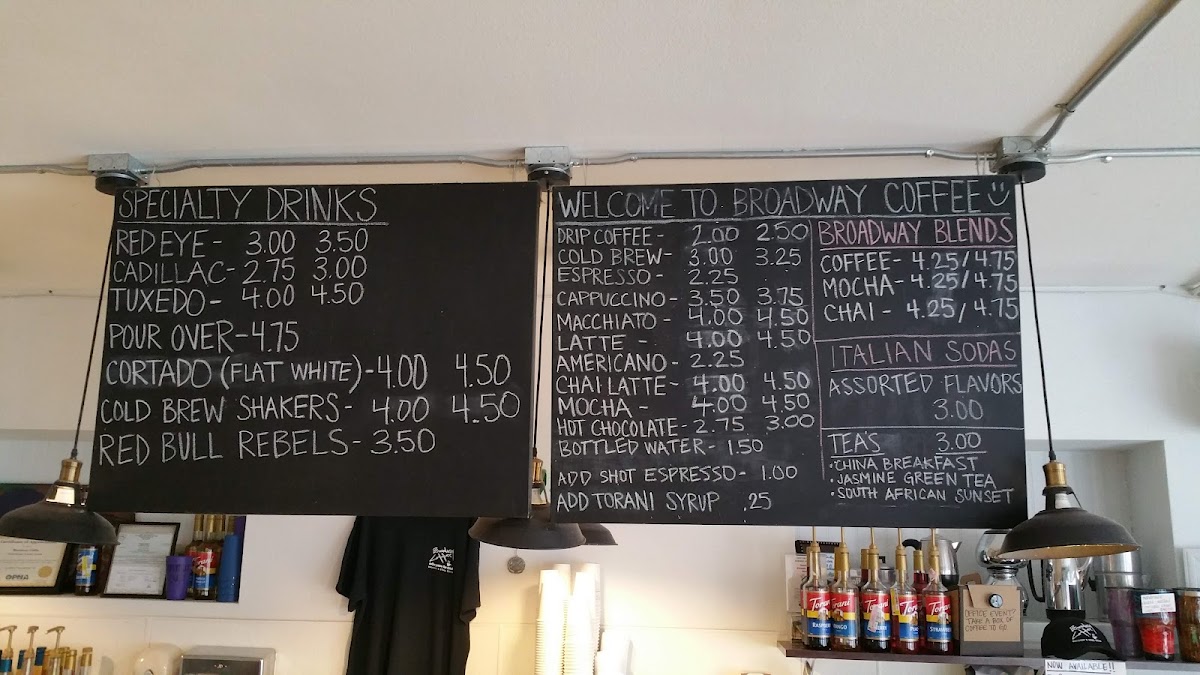 SPECIALTY DRINKS
RED EYE - 3.00 3.50
CADILLAC - 2.75 3.00
TUXEDO - 4.00 4.50
POUR OVER - 4.75
CORTADO (FLAT WHITE) - 4.00 4.50
COLD BREW SHAKERS - 4.00 4.50
RED BULL REBELS - 3.50
WELCOME TO BROADWAY COFFEE
DRIP COFFEE - 2.00 2.50
COLD BREW - 3.00 3.25
ESPRESSO - 2.25
CAPPUCCINO - 3.50 3.75
MACCHIATO - 4.00 4.50
LATTE - 4.00 4.50
AMERICANO - 2.25
CHAI LATTE - 4.00 4.50
MOCHA - 4.00 4.50
HOT CHOCOLATE - 2.75 3.00
BOTTLED WATER - 1.50
ADD SHOT ESPRESSO - 1.00
ADD TORANI SYRUP .25
BROADWAY BLENDS
COFFEE - 4.25/4.75
MOCHA - 4.25/4.75
CHAI - 4.25/4.75
ITALIAN SODAS
ASSORTED FLAVORS
3.00
TEA'S 3.00
• CHINA BREAKFAST
• JASMINE GREEN TEA
• SOUTH AFRICAN SUNSET
OFFICE EVENT?
TAKE A BOX OF
COFFEE TO GO
NOW AVAILABLE!!